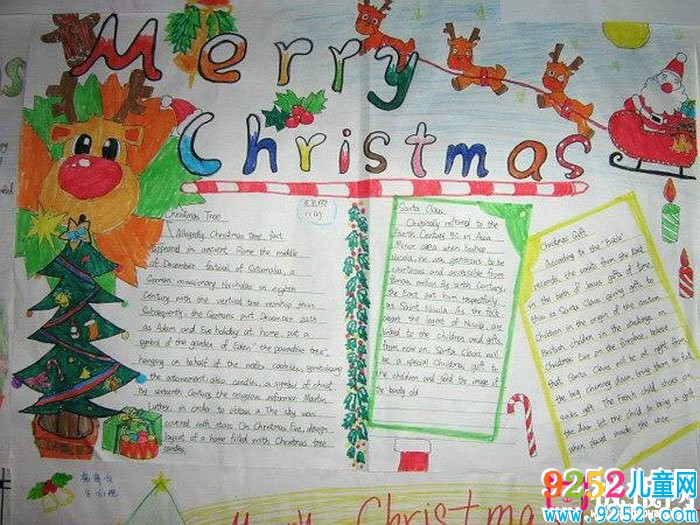 Merry
Christmas
Christmas Tree
Allegedly Christmas tree first
appeared in ancient Rome the middle
of December festival of Saturnalia, a
German missionary Nicholas in eighth
Century with the vertical tree worship
Subsequently, the Germans put December 24th
as Adam and Eve holiday at home, put a
symbol of the garden of Eden "the paradise tree",
hanging on behalf of the cookies, symbolizing
the atonement; also candles, a symbol of christ
by sixteenth Century, the religious informer Martin
Luther, in order to obtain a The sky was
covered with stars On Christmas Eve, design
layout of a home filled with Christmas tree
candles.
Santa Claus
Originally referred to the
Fourth Century BC in Asia
Minor area when bishop
Nicola, he was generous to be
courteous and accessible from
century,
the East put him respectfully
as Saint Nicola. As the fact
about the legend of Nicola are
linked to the children and gifts,
from now on, Santa Claus will
be a special Christmas gift to
the children and send the image of
the kindly old
Christmas Gift
According to the "Bible"
records, the saints from the East
in the birth of Jesus gifts of time,
this is Santa Claus giving gifts to
children in the origin of the custom
British children in the stockings on
Christmas Eve on the fireplace, believe
that Santa Claus will be at night from
the big chimney down, bring them to full
socks gift. The French child shoes on
the door, let the child to bring a gift
when placed inside the shoe
Merry Christmas
9252儿童网
www.9252.com